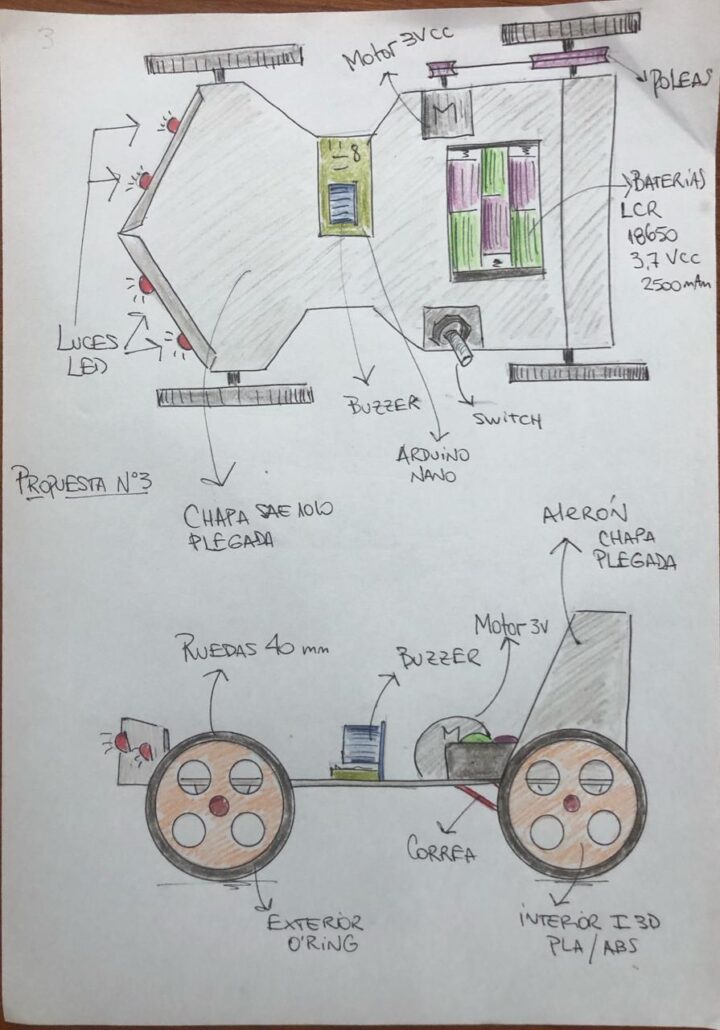 3
Motor 3Vcc
POLEAS
8
M
BATERIAS
LCR
18650
3,7 Vcc
2500 mAm
LUCES
LED
BUZZER
SWITCH
ARDUINO
NANO
PROPUESTA N°3
CHAPA SAE 1010
PLEGADA
ALERÓN
CHAPA
PLEGADA
RUEDAS 40 mm
BUZZER
Motor 3V
M
CORREA
EXTERIOR
O'RING
INTERIOR I 3D
PLA/ABS